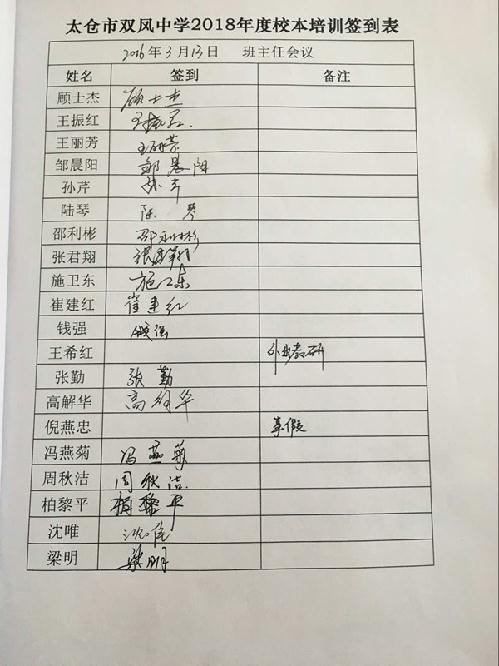 太仓市双凤中学2018年度校本培训签到表
2018年3月13日 班主任会议
姓名 签到 备注
顾士杰 顾士杰
王振红 王振红
王丽芳 王丽芳
邹晨阳 邹晨阳
孙芹 孙芹
陆琴 陆琴
邵利彬 邵利彬
张君翔 张君翔
施卫东 施卫东
崔建红 崔建红
钱强 钱强
王希红 外出教研
张勤 张勤
高解华 高解华
倪燕忠 事假
冯燕菊 冯燕菊
周秋洁 周秋洁
柏黎平 柏黎平
沈唯 沈唯
梁明 梁明